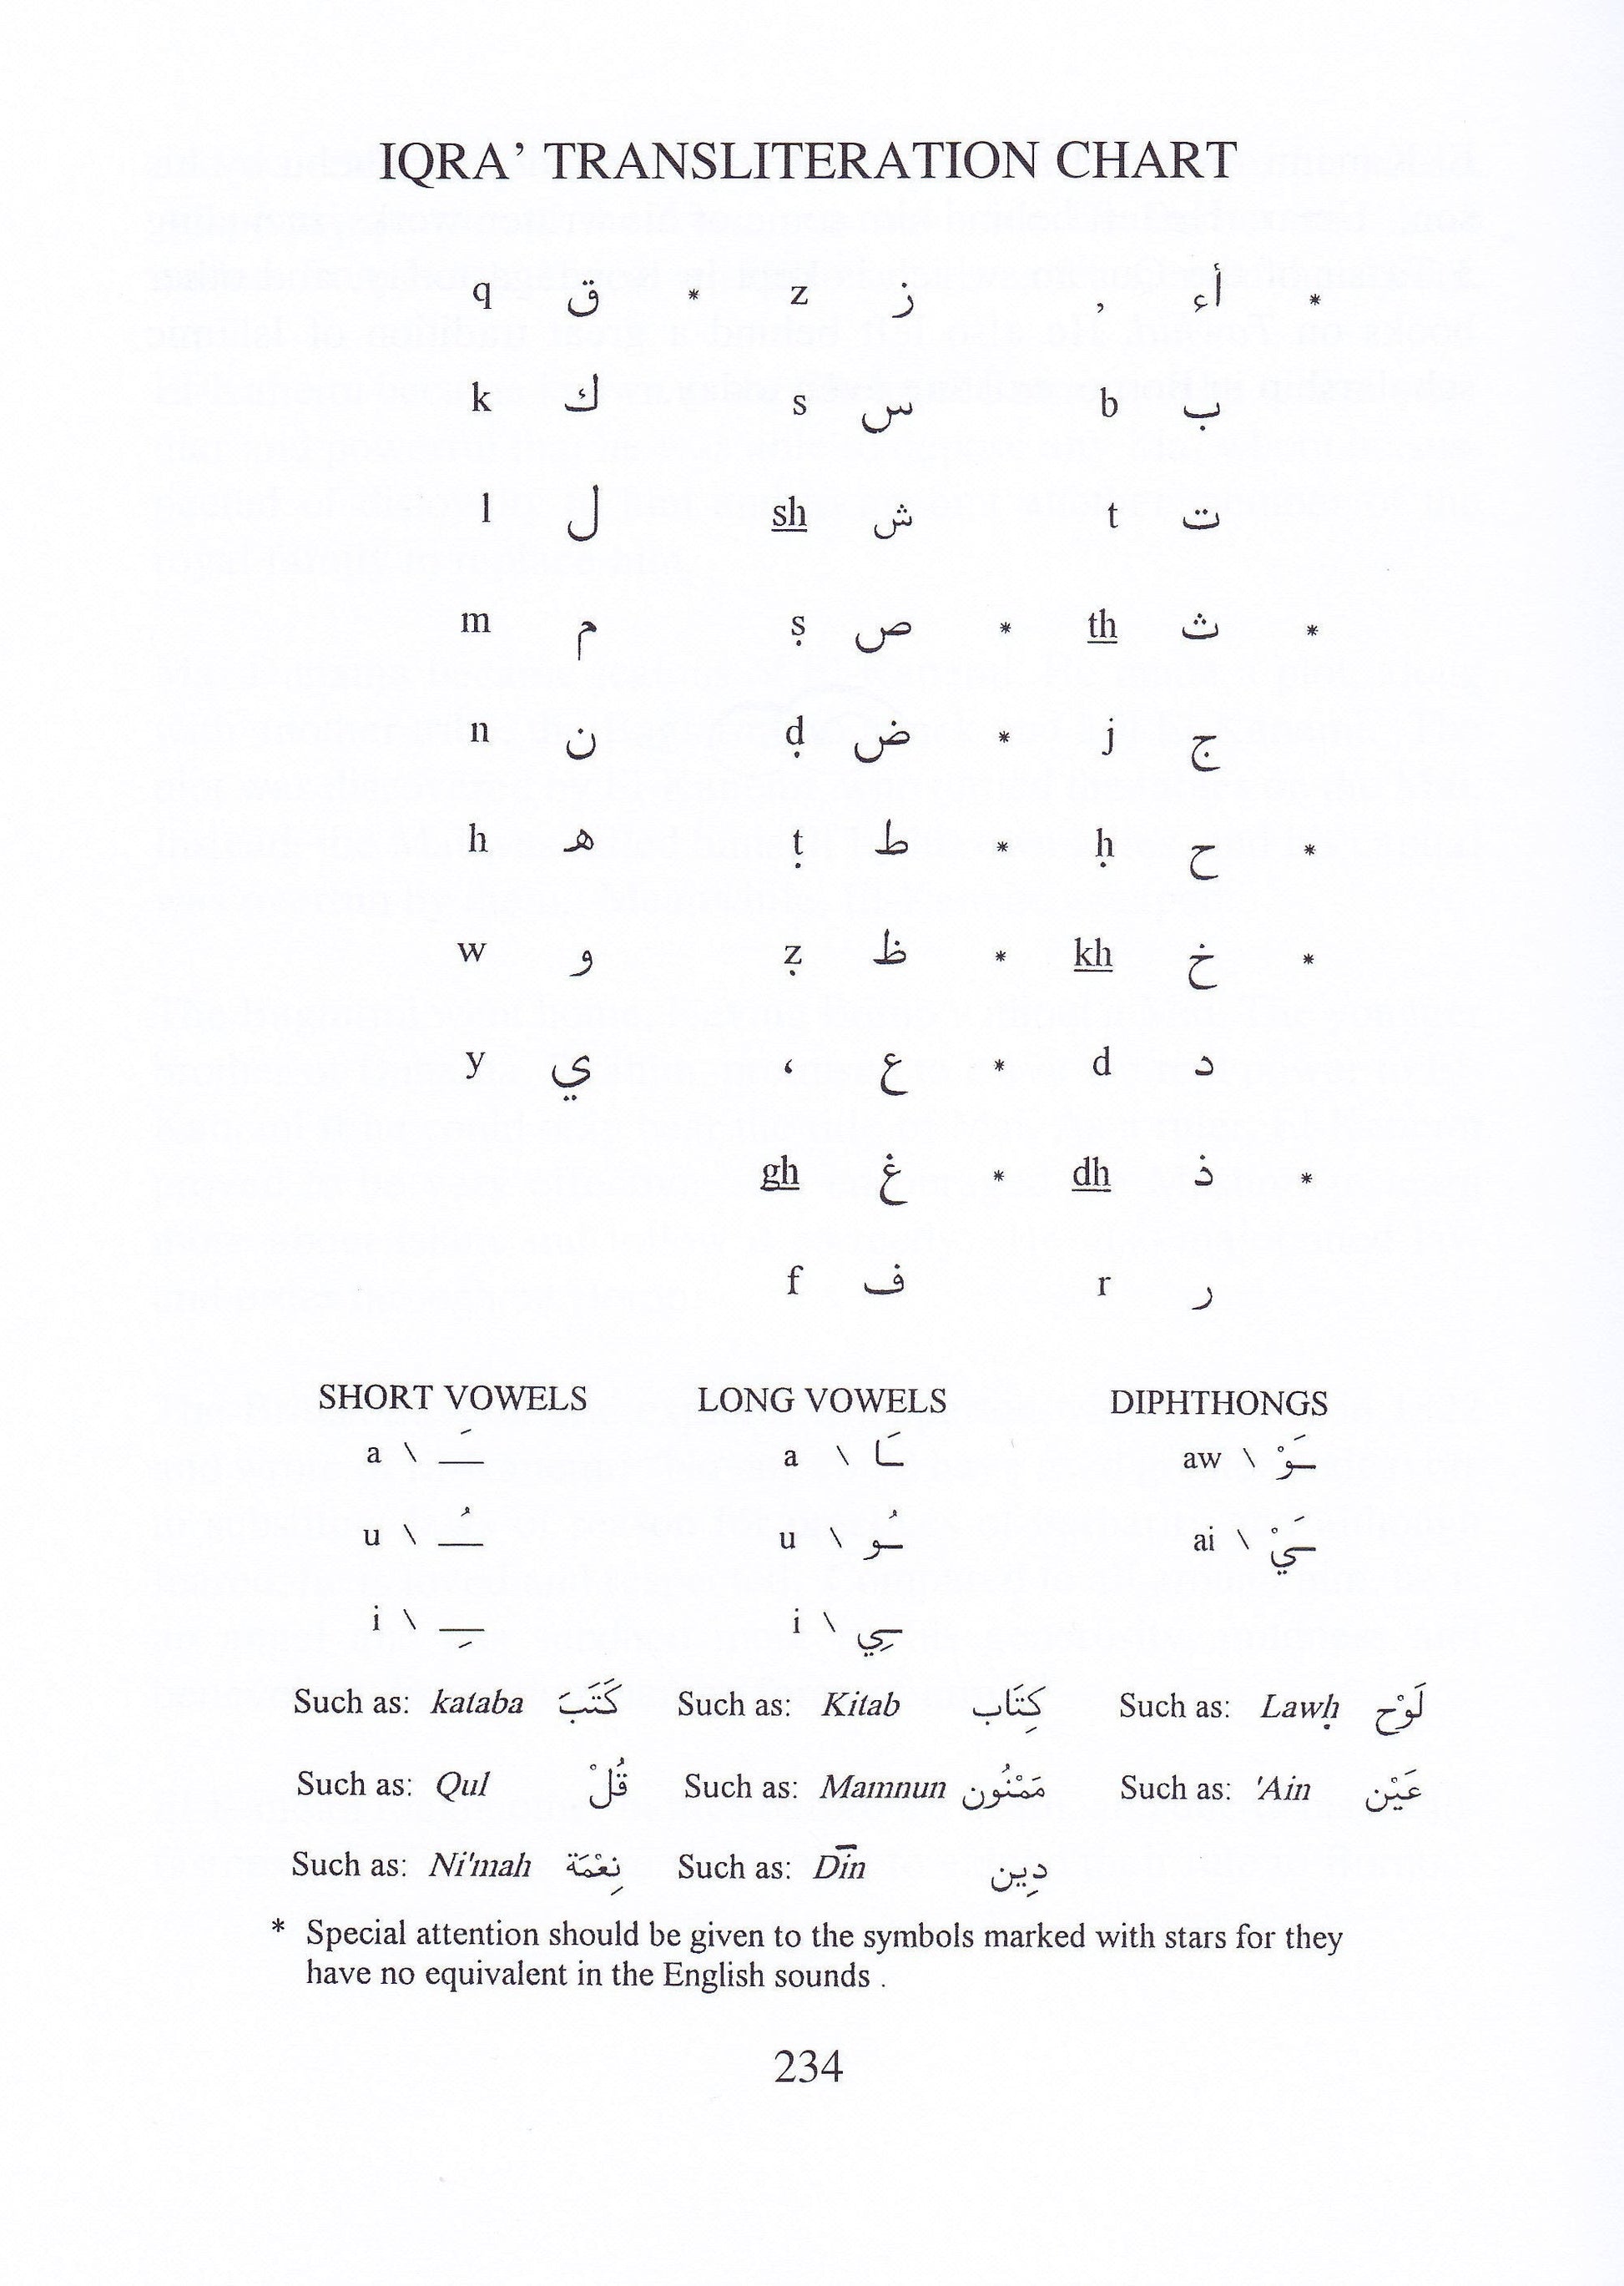 IQRA’ TRANSLITERATION CHART
q ق * z ز , أء *
k ك s س b ب
l ل sh ش t ت
m م ṣ ص * th ث *
n ن ḍ ض * j ج
h ه ṭ ط * ḥ ح *
w و ẓ ظ * kh خ *
y ي ‘ ع * d د
gh غ * dh ذ *
f ف r ر
SHORT VOWELS LONG VOWELS DIPHTHONGS
a \ ـَ a \ ـَا aw \ ـَوْ
u \ ـُ u \ ـُو ai \ ـَيْ
i \ ـِ i \ ـِي
Such as: kataba كَتَبَ Such as: Kitab كِتَاب Such as: Lawḥ لَوْح
Such as: Qul قُلْ Such as: Mamnun مَمْنُون Such as: 'Ain عَيْن
Such as: Ni'mah نِعْمَة Such as: Dīn دِين
* Special attention should be given to the symbols marked with stars for they
have no equivalent in the English sounds .
234